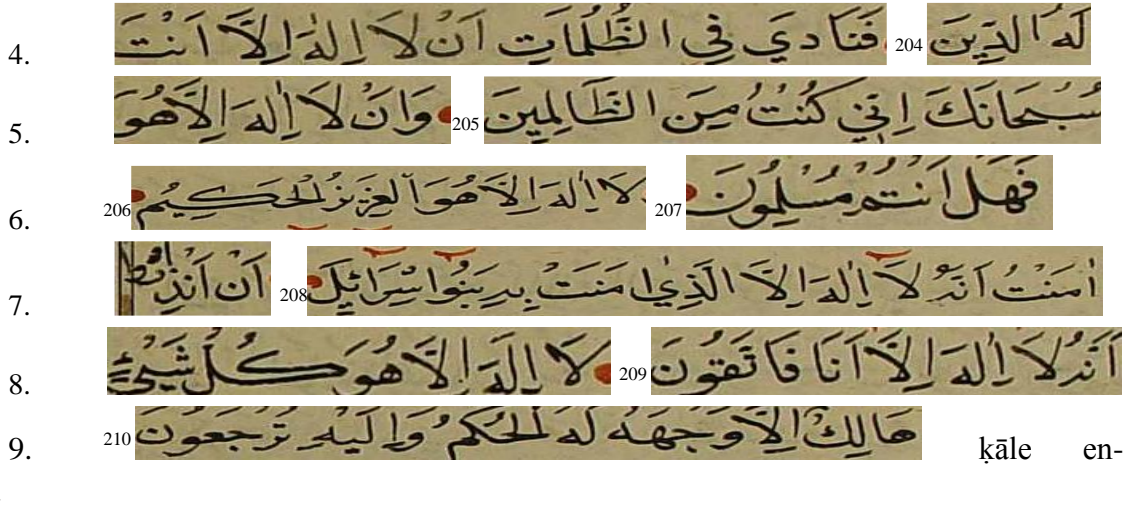 4. لَهُ الدِّينَ 204 فَنَادَي فِي الظُّلُمَاتِ اَنْ لَا اِلٰهَ اِلَّا اَنْتَ
5. سُبْحَانَكَ اِنِّي كُنْتُ مِنَ الظَّالِمِينَ 205 وَاَنْ لَا اِلٰهَ اِلَّا هُوَ
6. فَهَلْ اَنْتُمْ مُسْلِمُونَ 207 لَا اِلٰهَ اِلَّا هُوَ الْعَزِيزُ الْحَكِيمُ 206
7. اٰمَنْتُ اَنَّهُ لَا اِلٰهَ اِلَّا الَّذِي اٰمَنَتْ بِهِ بَنُوا اِسْرَائِيلَ 208 اَنْ اَنْذِرُوا
8. اَنَّهُ لَا اِلٰهَ اِلَّا اَنَا فَاتَّقُونَ 209 لَا اِلَهَ اِلَّا هُوَ كُلُّ شَيْءٍ
9. هَالِكٌ اِلَّا وَجْهَهُ لَهُ الْحُكْمُ وَاِلَيْهِ تُرْجَعُونَ 210 ḳāle en-